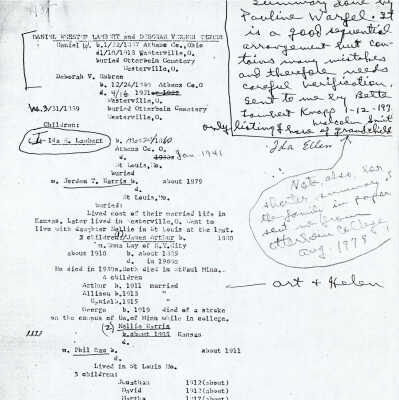 Summary done by
Pauline Wargel. It
is a good sequential
arrangement but con-
tains many mistakes
and therefore needs
careful verification.
Sent to me by Bette
Lambert Knapp 1-12-197
Malcolm
only listing I have of grandchild
Ida Ellen
DANIEL WEBSTER LAMBERT and DEBORAH
Daniel W. b.1/22/1837 Athens Co., Ohio
d1/10/1913 Westerville,O.
buried Otterbein Cemetery
Westerville,O.
Deborah V.
b. 12/24/1839 Athens Co.O
d. 4/16 1921
Westerville,O.
3/31/1859
buried Otterbein Cemetery
Westerville,O.
Children:
1. Ida E. Lambert b. 1860
Athens Co. O.
d. Jan 1941
St Louis, Mo.
buried
m. Jordan T. Harris b. about 1879
d.
St Louis, Mo.
buried:
Lived most of their married life in
Kansas, Later lived in Westerville,O. Went to
live with daughter Nellie in St Louis at the last.
3 children: (1) James Arthur b. 1880
m. Emma Lay of N.Y.City
about 1910 b. about 1889
d. in 1940s
He died in 1940s. Both died in StPaul Minn.
4 children
Arthur b. 1911 married
Allison b. 1913 "
Daniel b. 1915 "
George b. 1919 died of a stroke
on the campus of Un. of Minn while in college.
(2) Nellie Harris
1883
b. about 1881 Kansas
d.
m. Phil about 1911
d.
Lived in St Louis Mo.
3 children:
Jonathan 1912(about)
David 1912(about)
Martha 1912(about)
Note also, see
shorter summary of
the family in paper
sent me from
Otterbein College,
Aug. 1978
— art + Helen